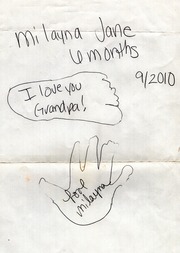 milayna Jane
6 months
9/2010
I love you
Grandpa!
love
milayna